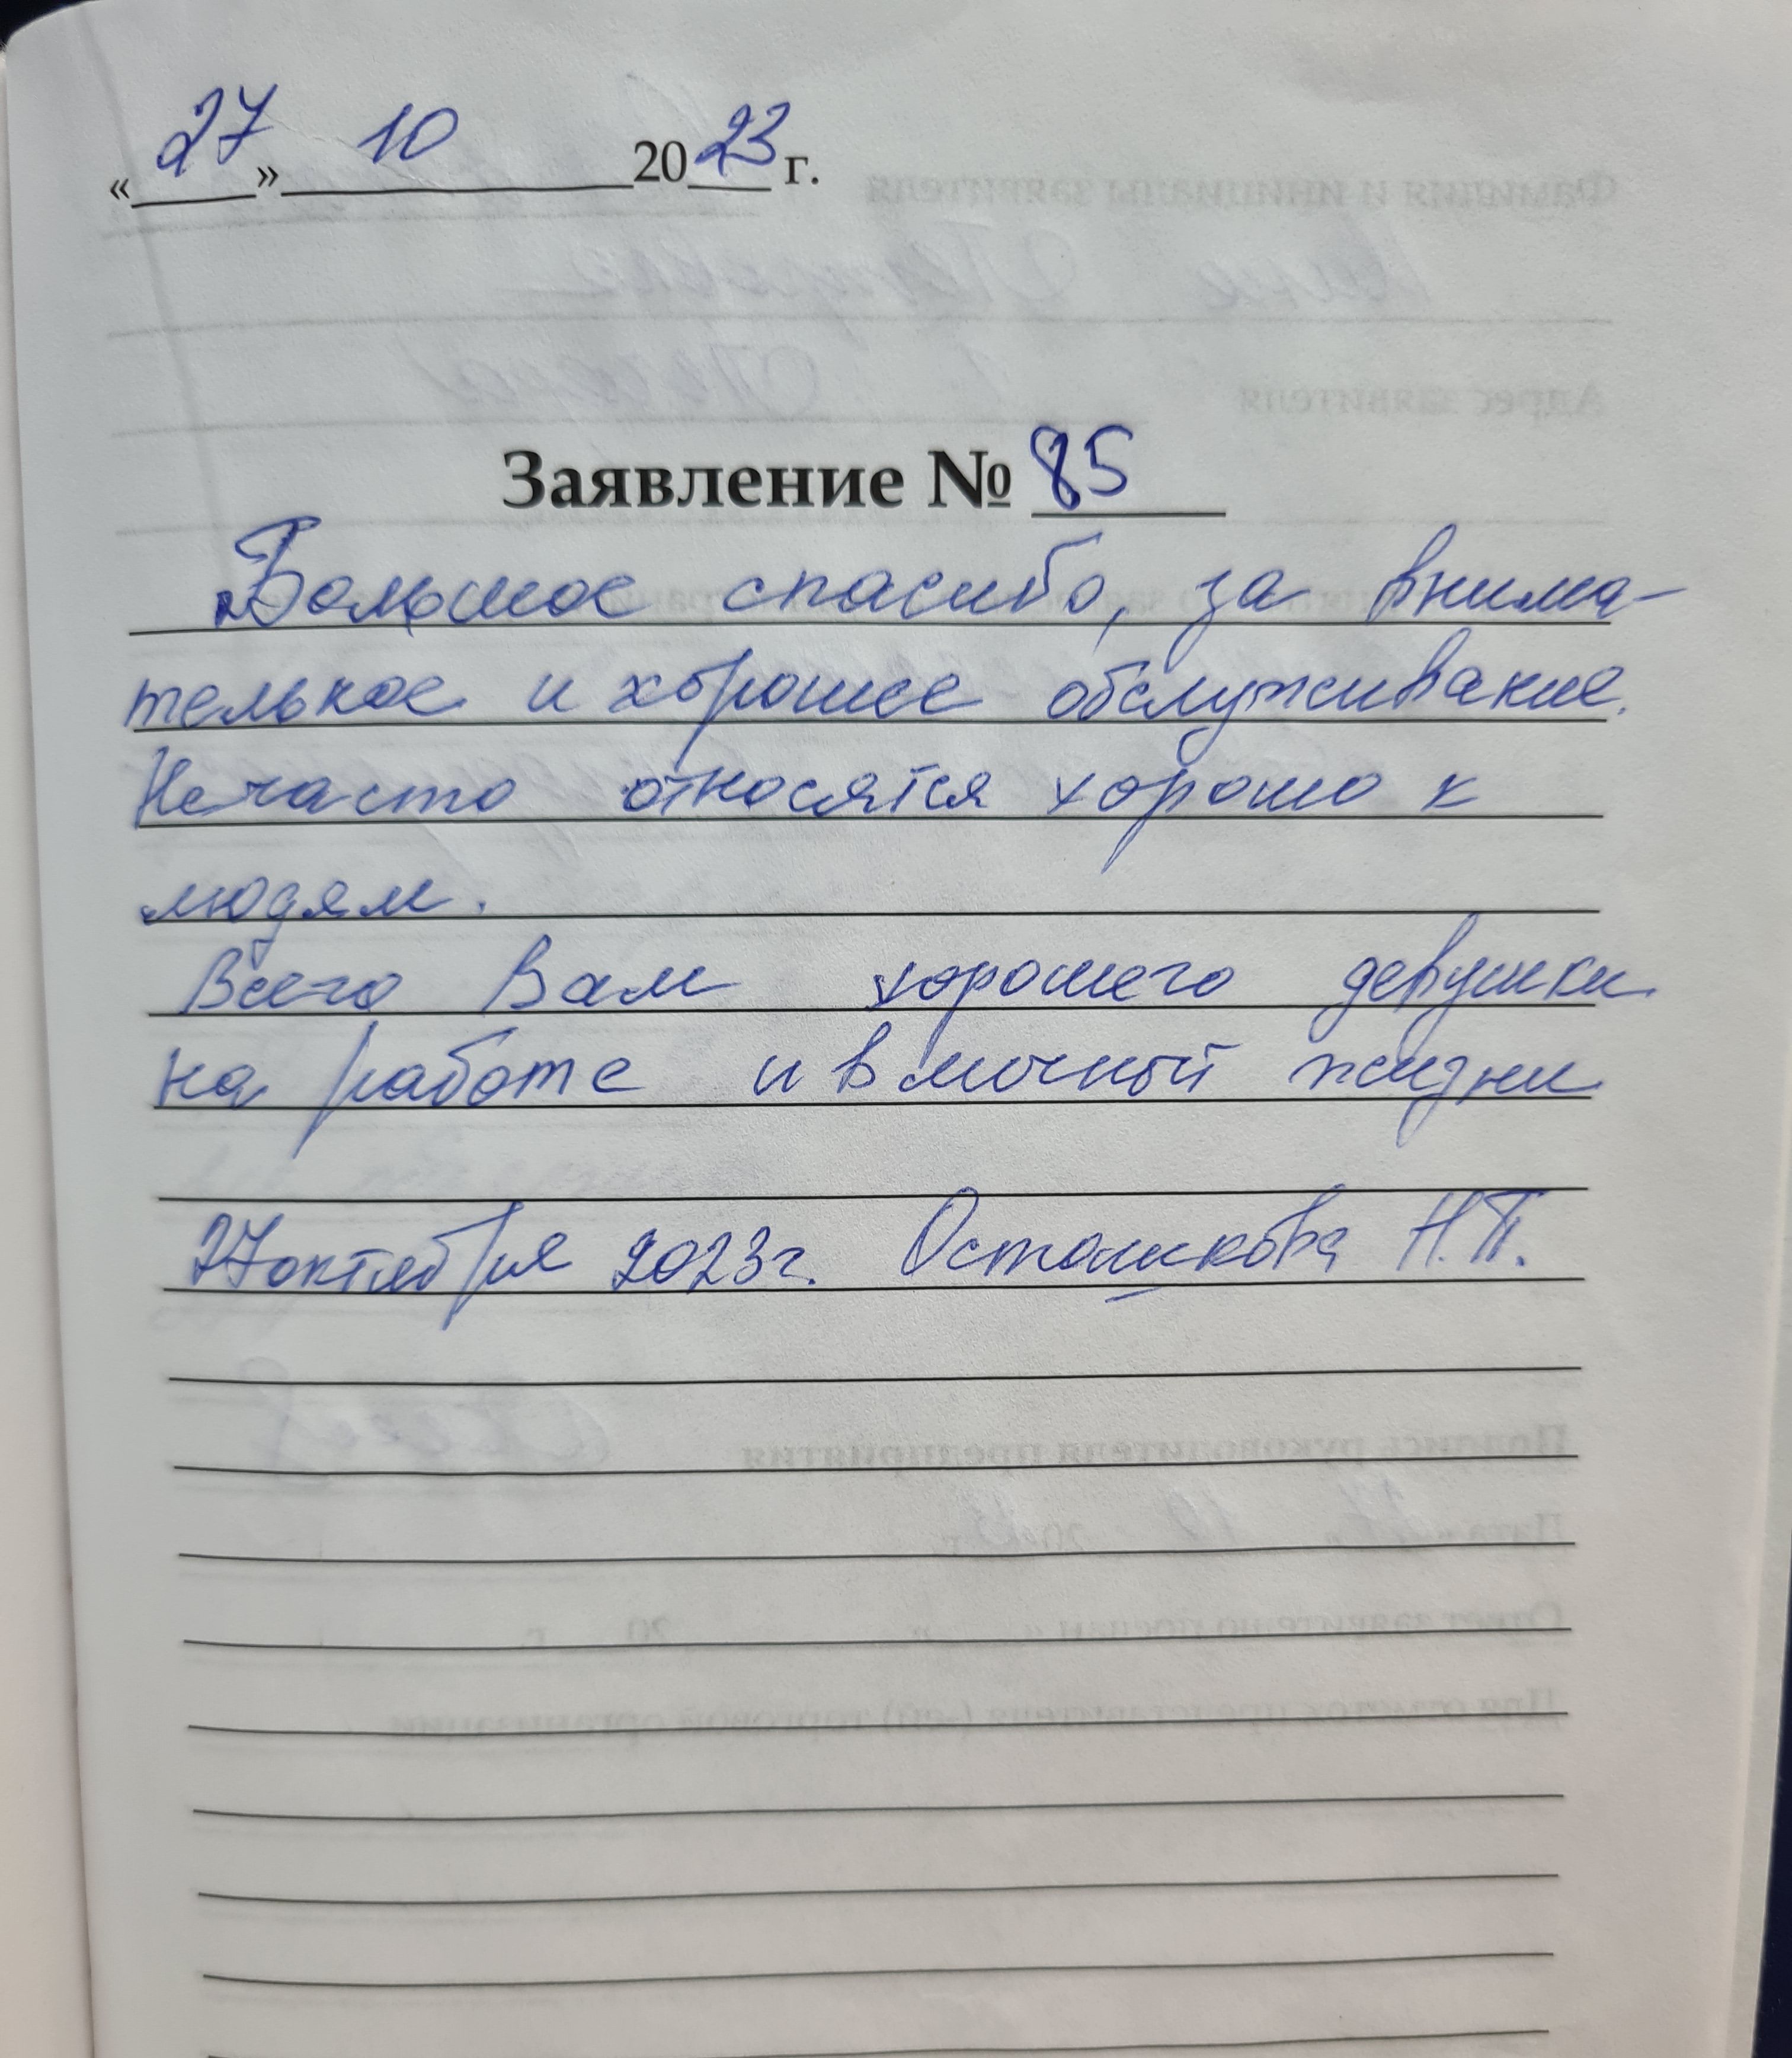 «27» 10 2023 г.
Заявление № 85
Большое спасибо, за внима-
тельное и хорошее обслуживание.
Нечасто относятся хорошо к
людям.
Всего Вам хорошего девушки
на работе и в личной жизни
27 октября 2023г. Осташкова Н.П.